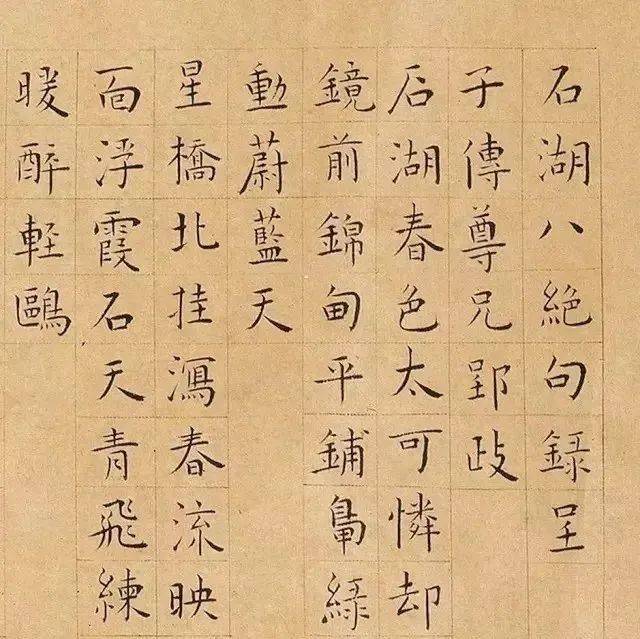 石湖八絶句録呈
子傳尊兄郢政
石湖春色太可憐却
鏡前錦甸平鋪鳧緑
動蔚藍天
星橋北挂瀉春流映
面浮霞石天青飛練
暖醉輕鷗